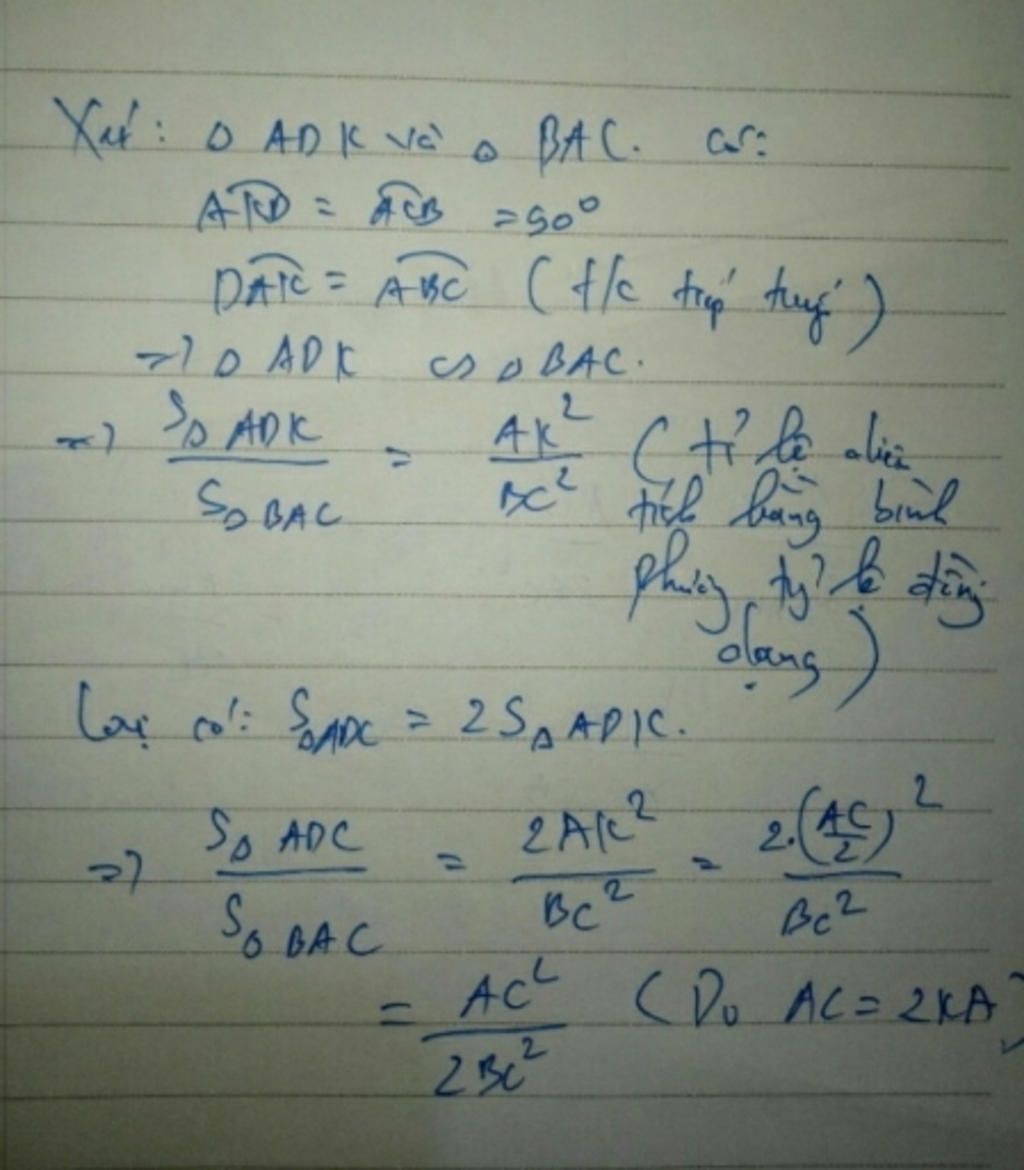 Xét: Δ ADK và Δ BAC. có:
AKD = ACB = 90°
DAK = ABC (t/c tiếp tuyế)
=> Δ ADK ∽ Δ BAC.
=> SΔ ADK / SΔ BAC = AK² / BC² (tỉ lệ diện
tích bằng bình
phương tỷ lệ đồng
dạng)
Lại có: SΔADC = 2 SΔ ADK.
=> SΔ ADC / SΔ BAC = 2AK² / BC² = 2.(AC/2)² / BC²
= AC² / 2BC² (Do AC = 2KA)